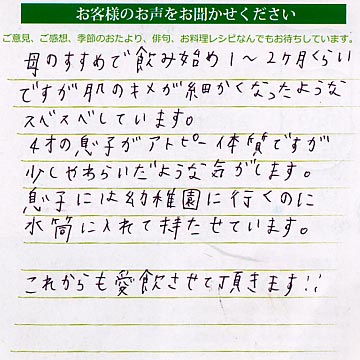 お客様のお声をお聞かせください
ご意見、ご感想、季節のおたより、俳句、お料理レシピなんでもお待ちしています。
母のすすめで飲み始め1〜2ヶ月くらい
ですが肌のキメが細かくなったような
スベスベしています。
4才の息子がアトピー体質ですが
少しやわらいだような気がします。
息子には幼稚園に行くのに
水筒に入れて持たせています。
これからも愛飲させて頂きます!!